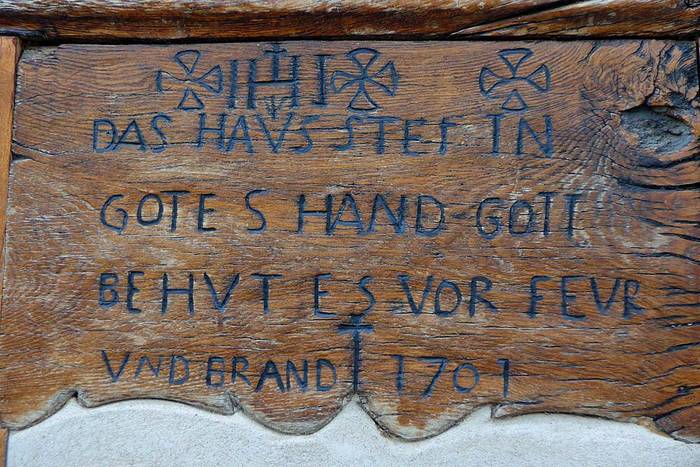 IHI
DAS HAVS STET IN
GOTES HAND GOTT
BEHVT ES VOR FEVR
VND BRAND 1701